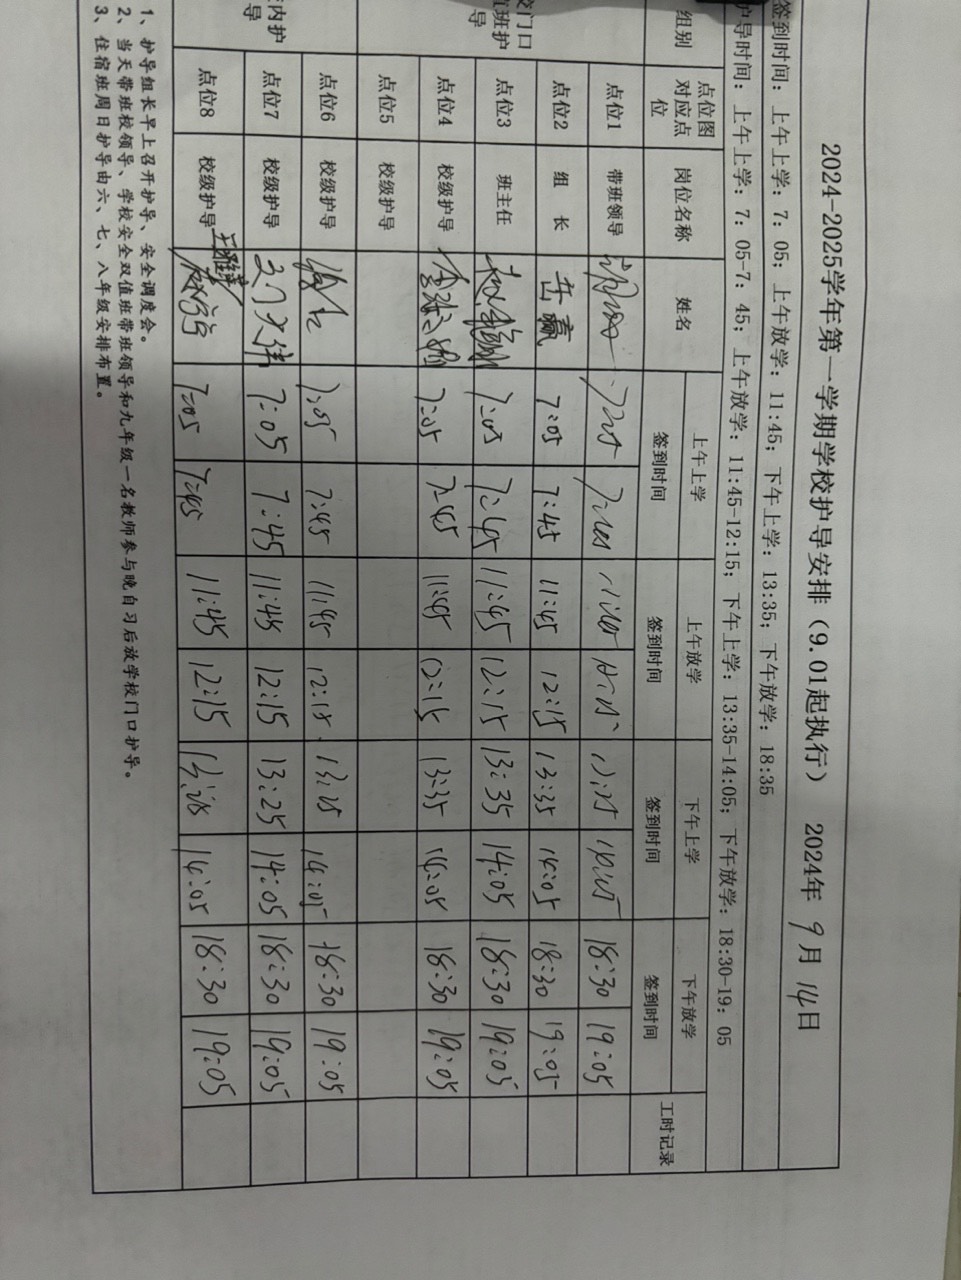 2024-2025学年第一学期学校护导安排（9.01起执行） 2024年 9月 14日
签到时间：上午上学：7：05；上午放学：11:45；下午上学：13:35；下午放学：18:35
护导时间：上午上学：7：05-7：45；上午放学：11:45-12:15；下午上学：13:35-14:05；下午放学：18:30-19：05
组别 点位图对应点位 岗位名称 姓名 上午上学签到时间 上午放学签到时间 下午上学签到时间 下午放学签到时间 工时记录
校门口值班护导
点位1 带班领导 18:30 19:05
点位2 组 长 岳赢 7:05 7:45 11:45 12:15 13:35 14:05 18:30 19:05
点位3 班主任 7:05 7:45 11:45 12:15 13:35 14:05 18:30 19:05
点位4 校级护导 7:05 7:45 11:45 12:15 13:35 14:05 18:30 19:05
点位5 校级护导
内护导
点位6 校级护导 7:05 7:45 11:45 12:15 14:05 18:30 19:05
点位7 校级护导 7:05 7:45 11:45 12:15 13:25 14:05 18:30 19:05
点位8 校级护导 7:05 7:45 11:45 12:15 14:05 18:30 19:05
1、护导组长早上召开护导、安全调度会。
2、当天带班校领导、学校安全双值班带班领导和九年级一名教师参与晚自习后放学校门口护导。
3、住宿班周日护导由六、七、八年级安排布置。